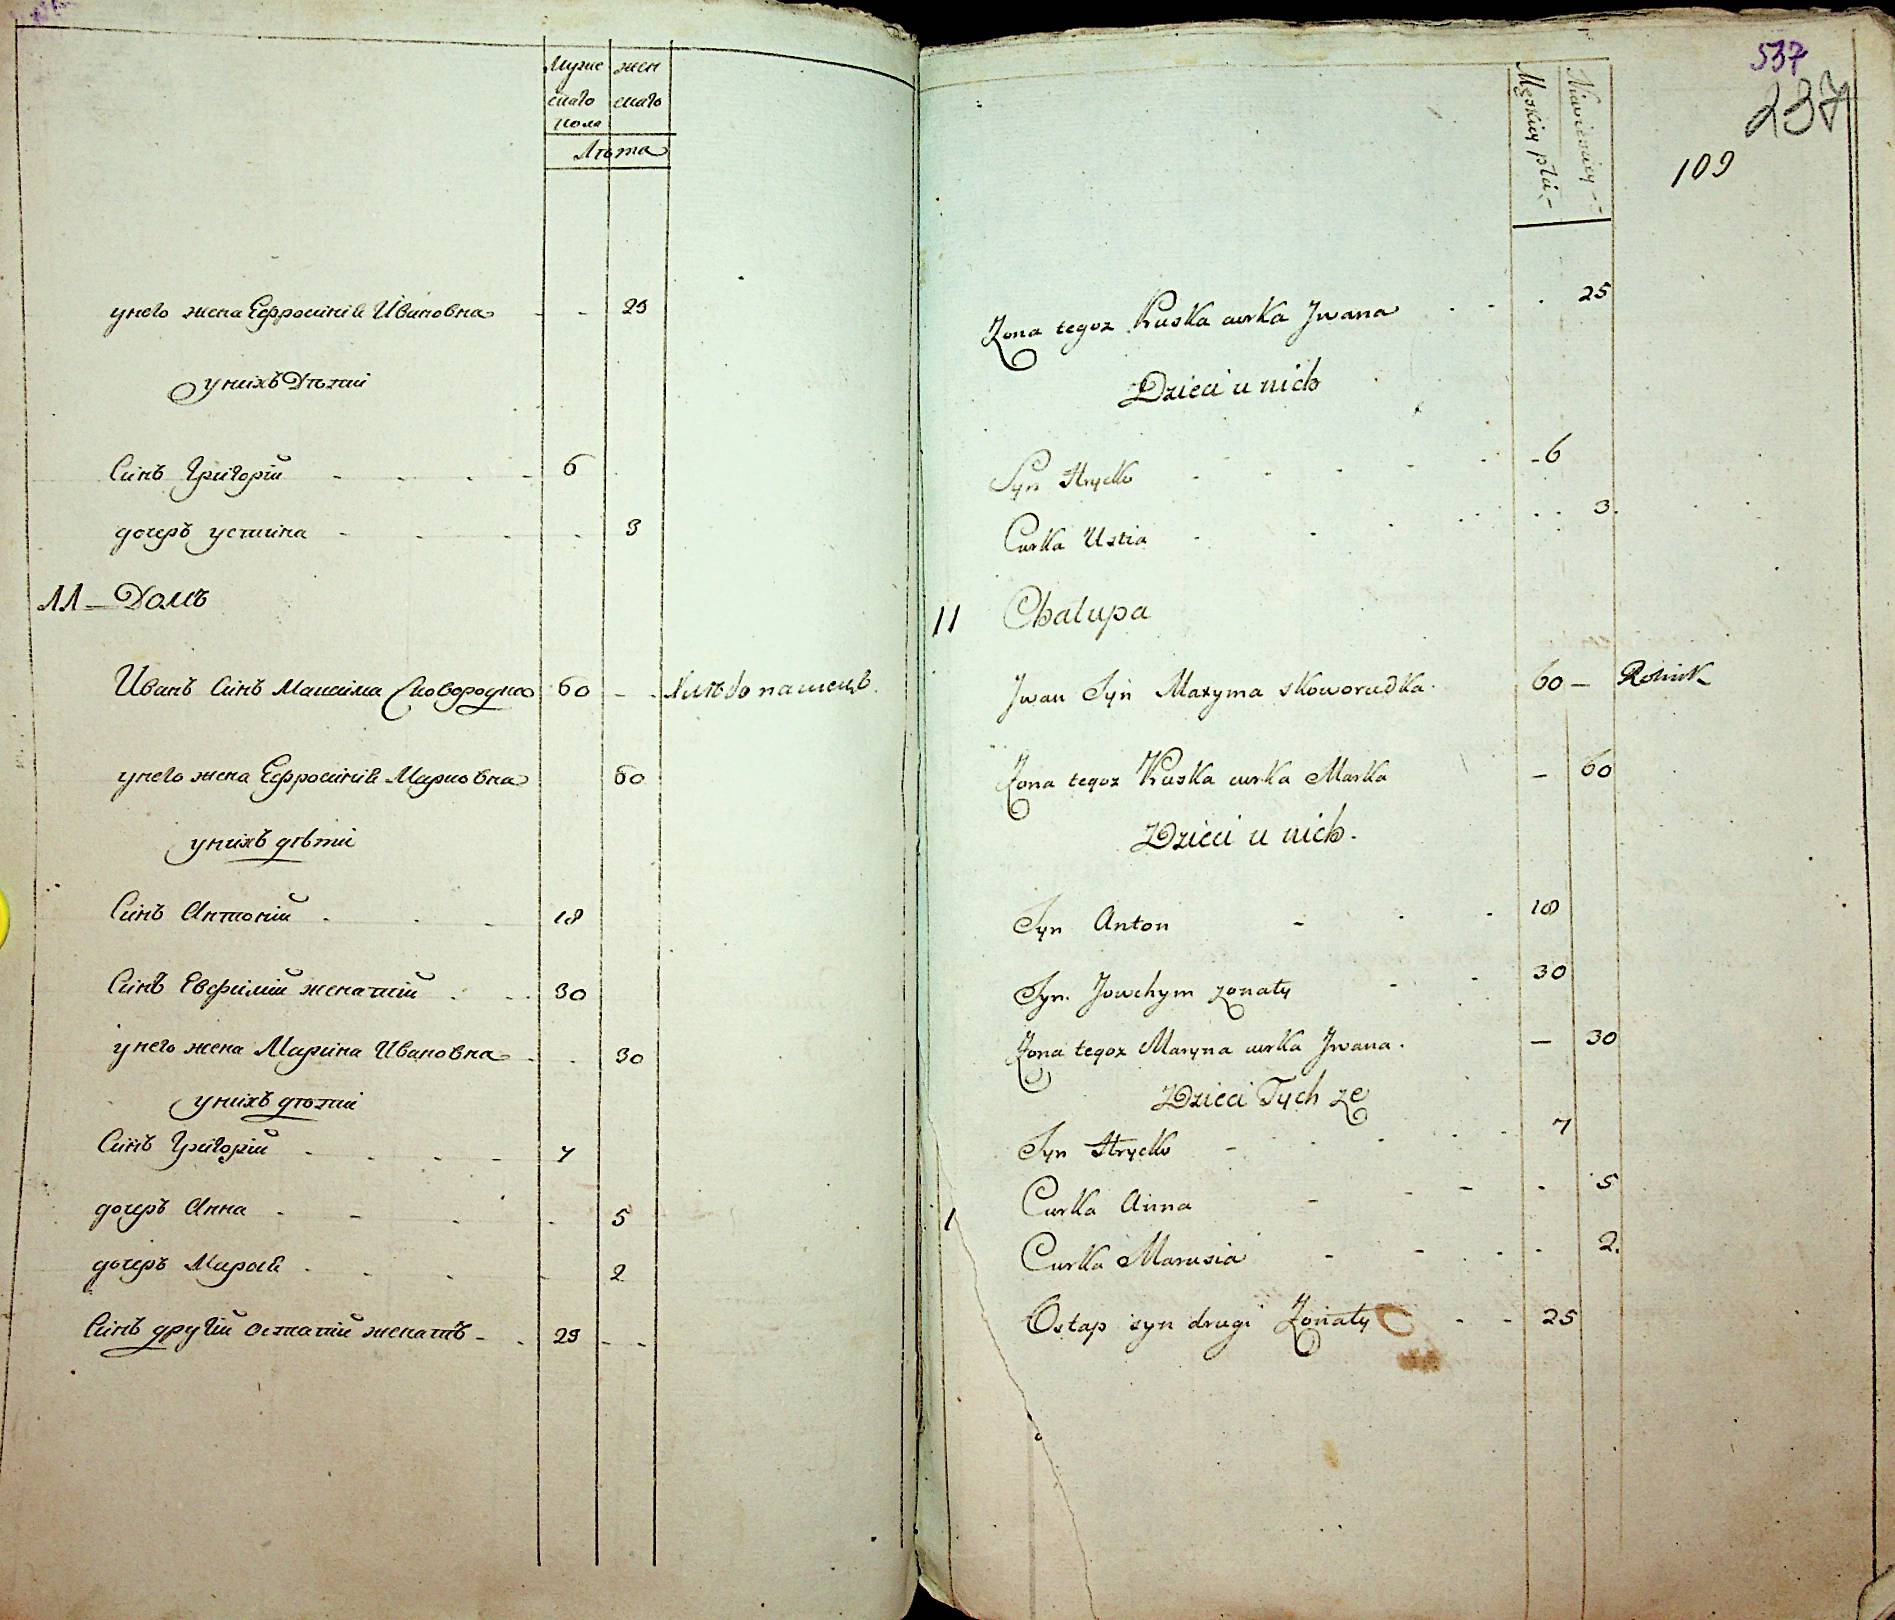 Муже жен
скаго скаго
пола
Лѣта
у него жена Ефросинія Ивановна 25
у нихъ Дѣти
Синъ Григорій 6
дочеръ устина 3
11 Домъ
Иванъ Синъ Максима Сковородка 60 Хлѣбопашецъ
у него жена Ефросинія Марковна 60
у нихъ дѣти
Синъ Антоній 18
Синъ Евфимій женатій 30
у него жена Марина Ивановна 30
у нихъ дѣти
Синъ Григорій 7
дочеръ Анна 5
дочеръ Марія 2
Синъ другій Остапій женатъ 25
537
237
109
Męskiey płci
Niewiesciey
Zona tegoz Pruska curka Jwana 25
Dzieci u nich
Syn Hrycko 6
Curka Ustia 3
11 Chalupa
Jwan Syn Maxyma Skoworudka 60 Rolnik
Zona tegoz Pruska curka Marka 60
Dzieci u nich
Syn Anton 18
Syn Jowchym zonaty 30
Zona tegoz Maryna curka Jwana 30
Dzieci Tych ze
Syn Hrycko 7
Curka Anna 5
Curka Marusia 2
Ostap syn drugi Zonaty 25